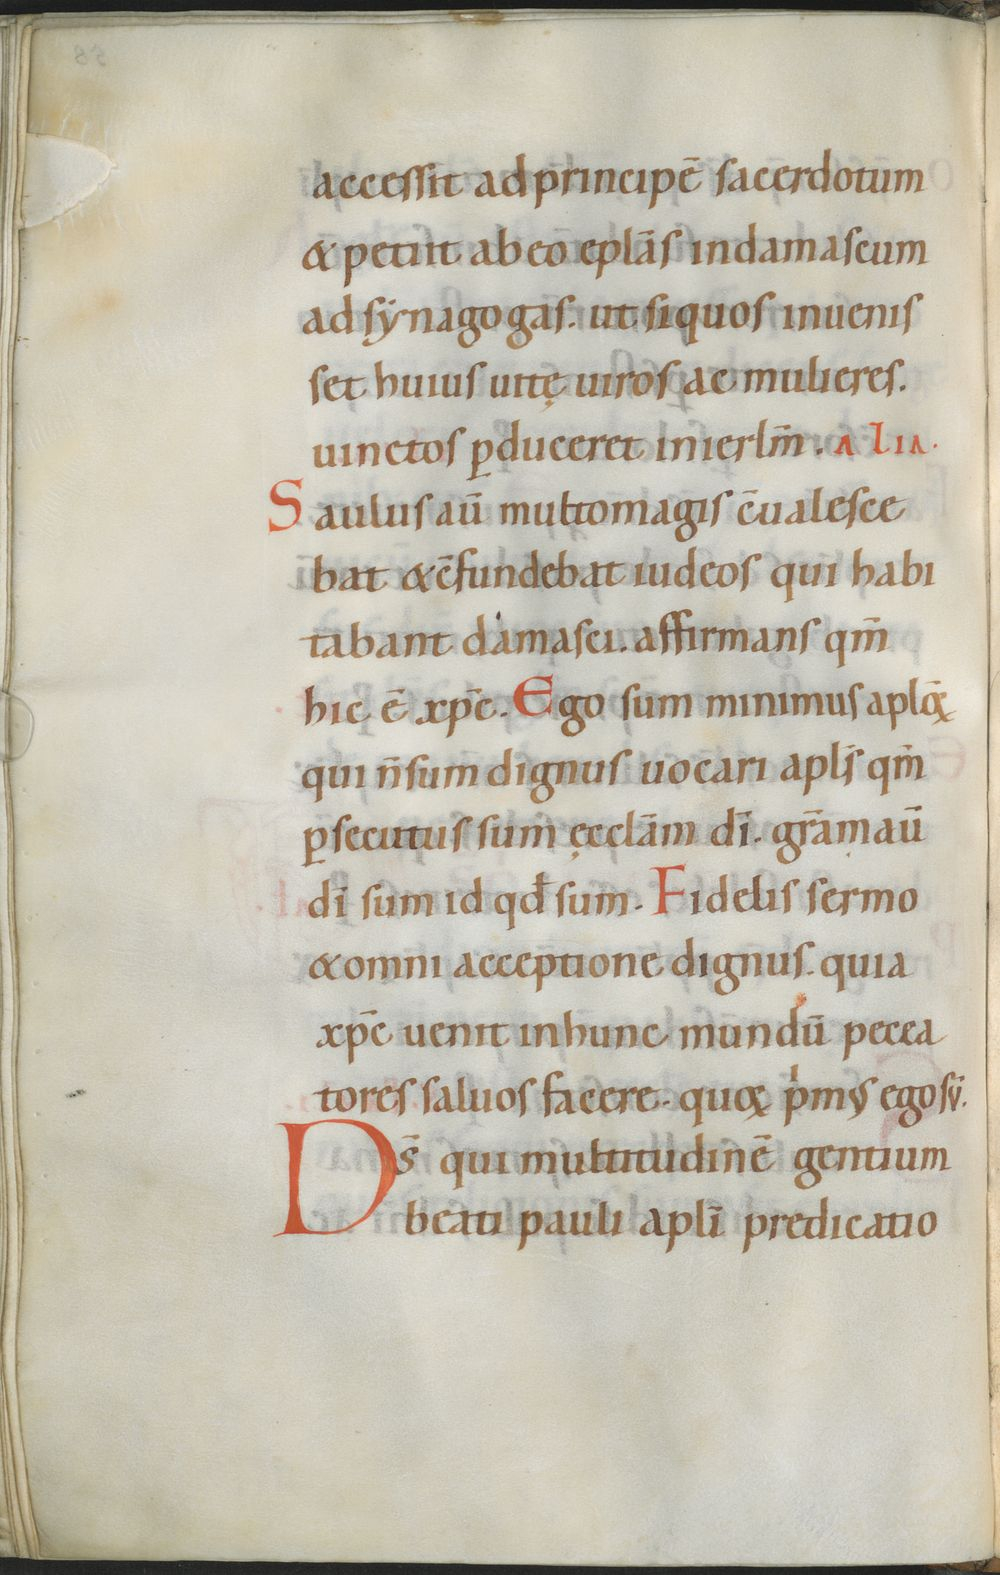 accessit ad principē sacerdotum
& petiit ab eo eplās in damascum
ad sẏnagogas. ut siquos inuenis
set huius uitę uiros ac mulieres.
uinctos ꝑduceret in ierlm̄. ALIA.
Saulus aū multo magis c̄ualesce
bat & c̄fundebat iudeos qui habi
tabant damasci. affirmans qm̄
hic ē xp̄c. Ego sum minimus aplōꝝ
qui n̄ sum dignus uocari apls̄ qm̄
ꝑsecutus sum ęcclām dī. grām aū
dī sum id qđ sum. Fidelis sermo
& omni acceptione dignus. quia
xp̄c uenit in hunc mundū pecca
tores saluos facere. quoꝝ p'mus ego sū.
Ds̄ qui multitudinē gentium
beati pauli aplī predicatio